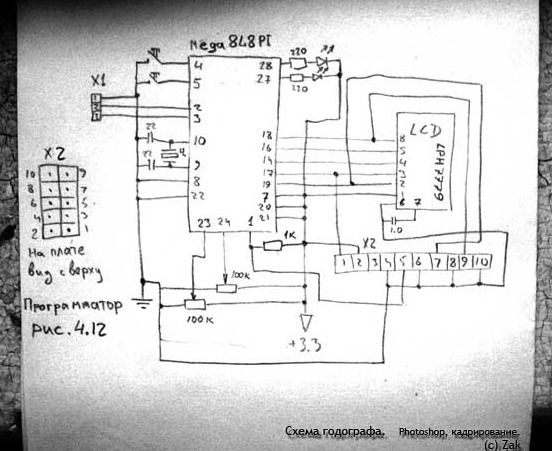 Mega 848PI
X1
1
2
3
4
5
2
3
10
9
8
22
28
27
18
16
14
17
19
7
20
21
23 24 1
220
220
22
22
4
LCD
LPH7779
8
5
4
3
2
1
6 7
1.0
1K
X2
1 2 3 4 5 6 7 8 9 10
100K
100K
+3.3
X2
10 9
8 7
6 5
4 3
2 1
На плате
вид сверху
Программатор
рис. 4.12
Схема годографа. Photoshop, кадрирование.
(c) Zak